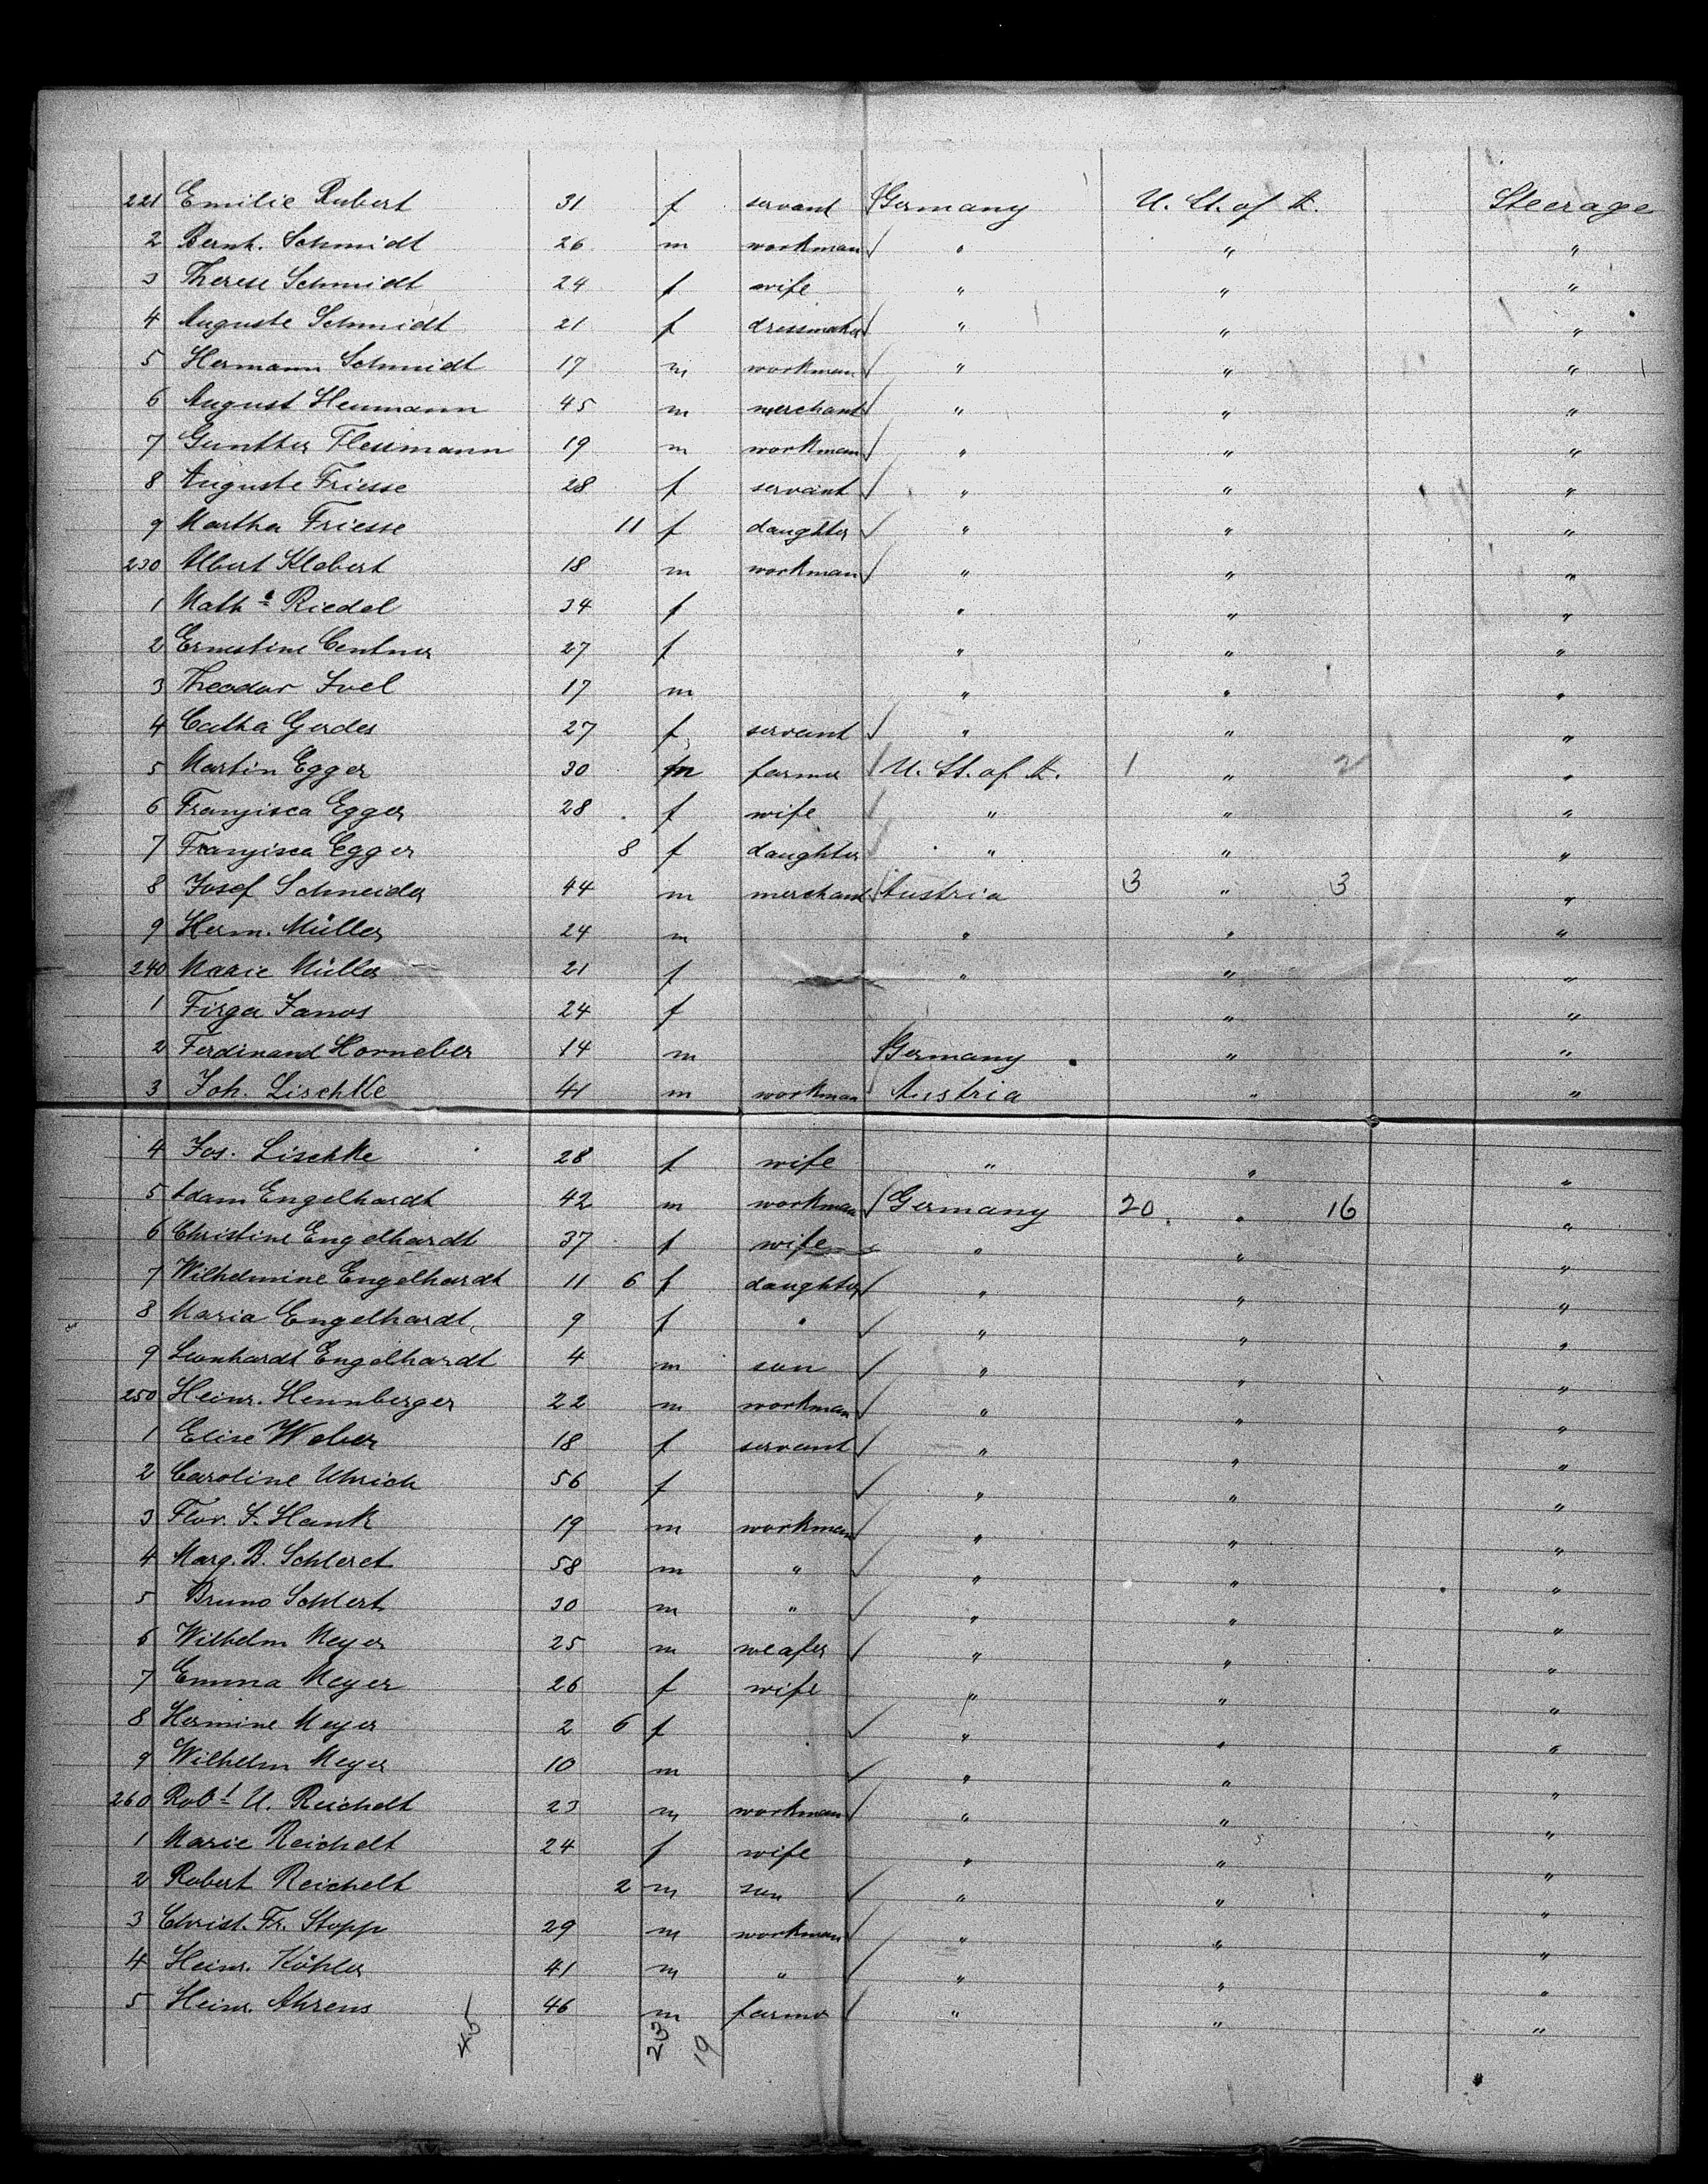 221 Emilie Rubert 31 f servant Germany U. St. of A. Steerage
2 Bernh. Schmidt 26 m workman " " "
3 Therese Schmidt 24 f wife " " "
4 Auguste Schmidt 21 f dressmaker " " "
5 Hermann Schmidt 17 m workman " " "
6 August Heumann 45 m merchant " " "
7 Gunther Flessmann 19 m workman " " "
8 Auguste Friesse 28 f servant " " "
9 Martha Friesse 11 f daughter " " "
230 Albert Klebert 18 m workman " " "
1 Mathe Riedel 34 f " " "
2 Ernestine Centner 27 f " " "
3 Theodor Juel 17 m " " "
4 Catha Gerdes 27 f servant " " "
5 Martin Egger 30 m farmer U. St. of A. 1 " 2 "
6 Franzisca Egger 28 f wife " " "
7 Franzisca Egger 8 f daughter " " "
8 Josef Schneider 44 m merchant Austria 3 " 3 "
9 Herm. Müller 24 m " " "
240 Marie Müller 21 f " " "
1 Firga Janos 24 f " "
2 Ferdinand Horneber 14 m Germany " "
3 Joh. Lischke 41 m workman Austria " "
4 Jos. Lischke 28 f wife " " "
5 Adam Engelhardt 42 m workman Germany 20 " 16 "
6 Christine Engelhardt 37 f wife " " "
7 Wilhelmine Engelhardt 11 6 f daughter " " "
8 Maria Engelhardt 9 f " " " "
9 Leonhardt Engelhardt 4 m son " " "
250 Heinr. Hennberger 22 m workman " " "
1 Elise Weber 18 f servant " " "
2 Caroline Uhrich 56 f " " "
3 Flor. S. Hank 19 m workman " " "
4 Marg. B. Schleret 58 m " " " "
5 Bruno Schlert 30 m " " " "
6 Wilhelm Meyer 25 m weafer " " "
7 Emma Meyer 26 f wife " " "
8 Hermine Meyer 2 6 f " " "
9 Wilhelm Meyer 10 m " " "
260 Robt U. Reichelt 23 m workman " " "
1 Marie Reichelt 24 f wife " " "
2 Robert Reichelt 2 m son " " "
3 Christ. Fr. Stopp 29 m workman " " "
4 Heinr. Köhler 41 m " " " "
5 Heinr. Ahrens 46 m farmer " " "
45 23 19